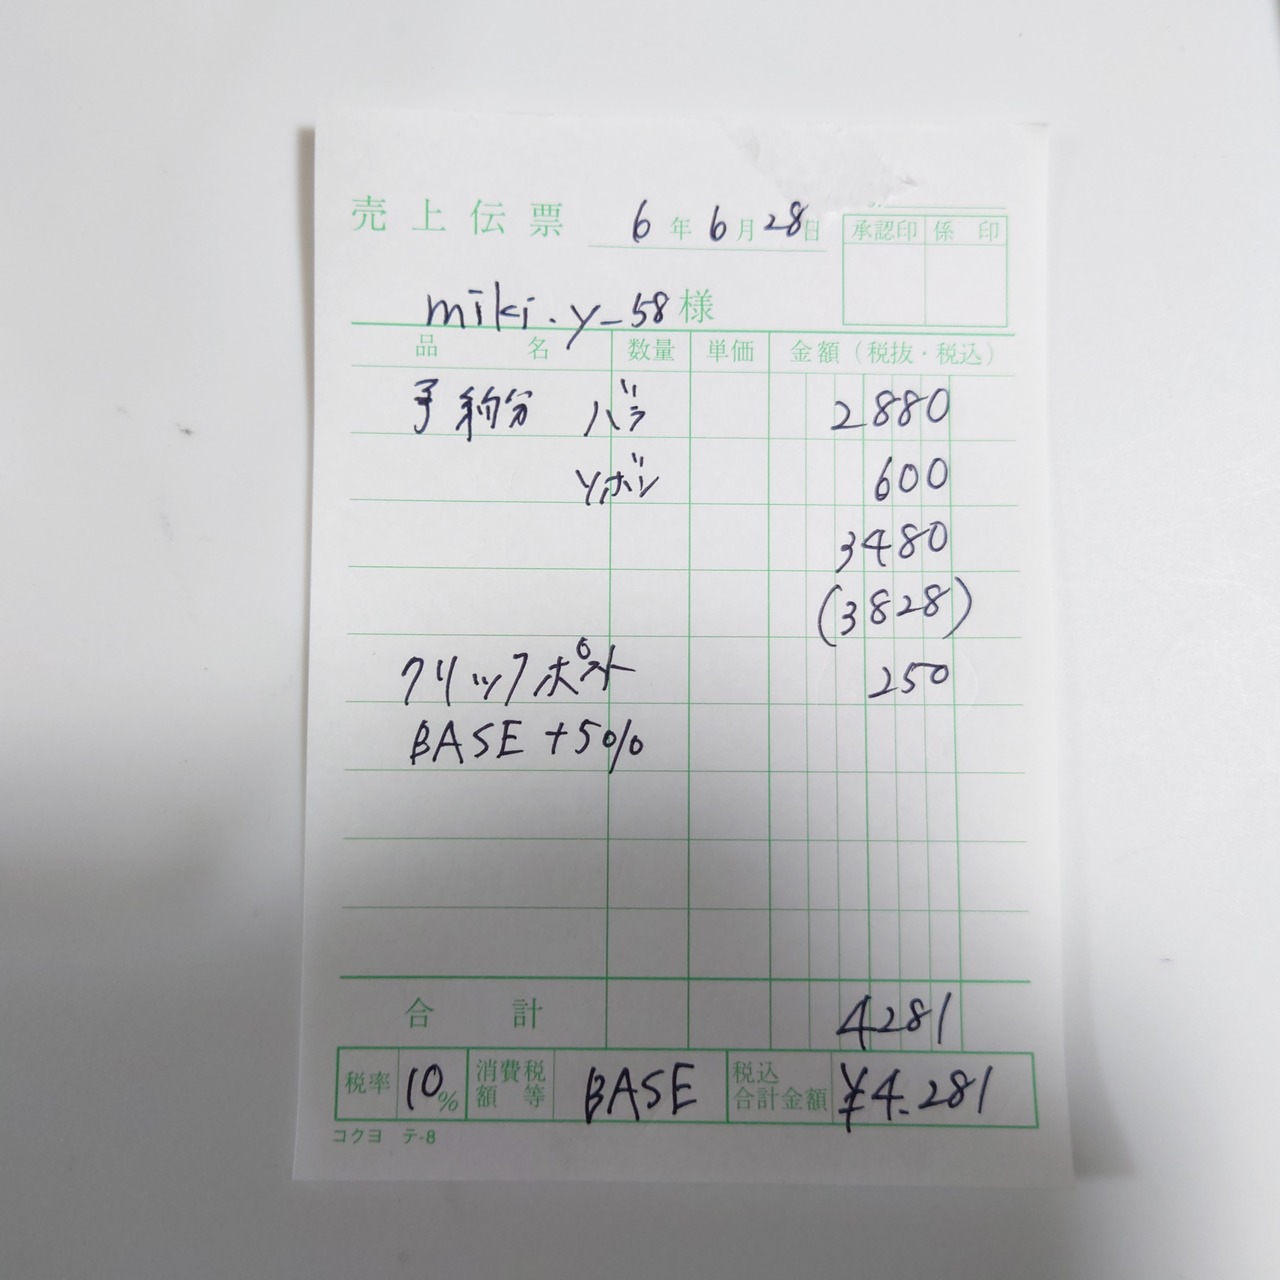 売上伝票 6年6月28日
承認印 係印
miki.y-58様
品名 数量 単価 金額(税抜・税込)
予約分 バラ 2880
リボン 600
3480
(3828)
クリックポスト 250
BASE +5%
合計 4281
税率 10% 消費税額等 BASE 税込合計金額 ¥4.281
コクヨ テ-8